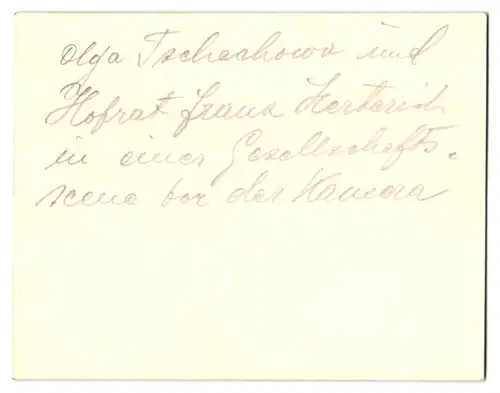 Olga Tschechowa und
Hofrat Franz Herterich
in einer Gesellschafts-
scene vor der Kamera